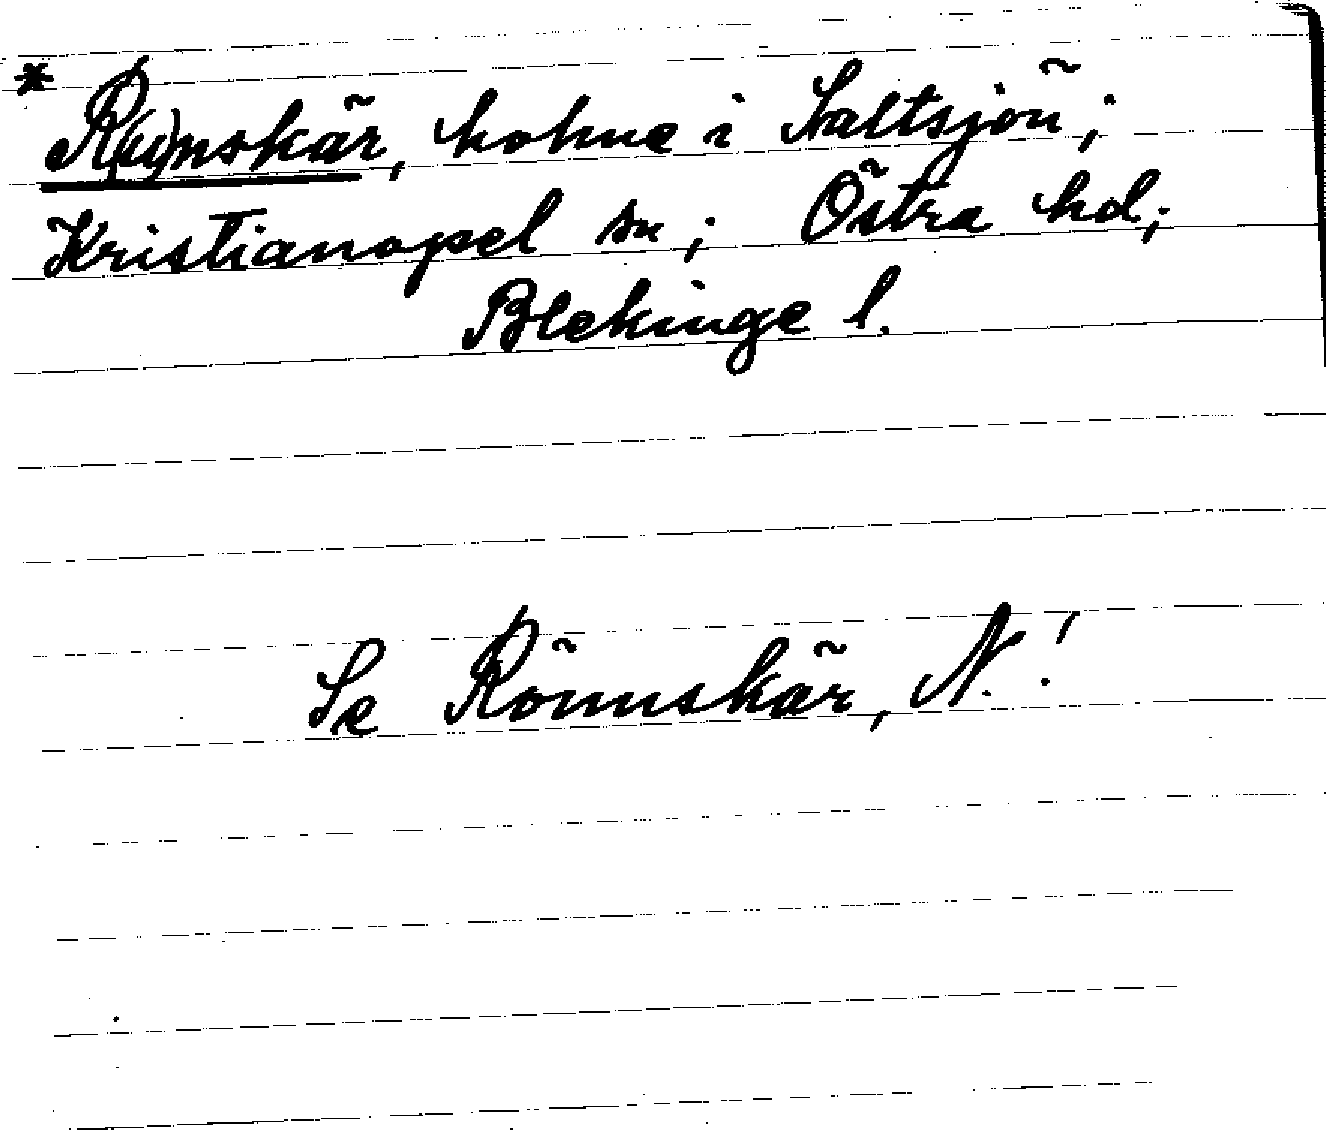 * R(u)nskär, holme i Saltsjön;
Kristianopel sn; Östra hd;
Blekinge l.
Se Rönnskär, N.!